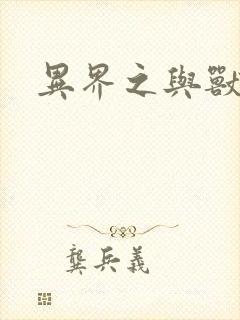 異界之與獸
龔兵義